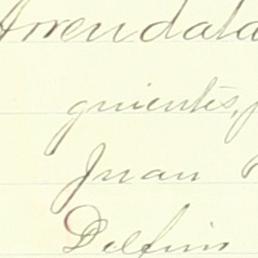 Arrendata
guientes,
Juan
Delfin